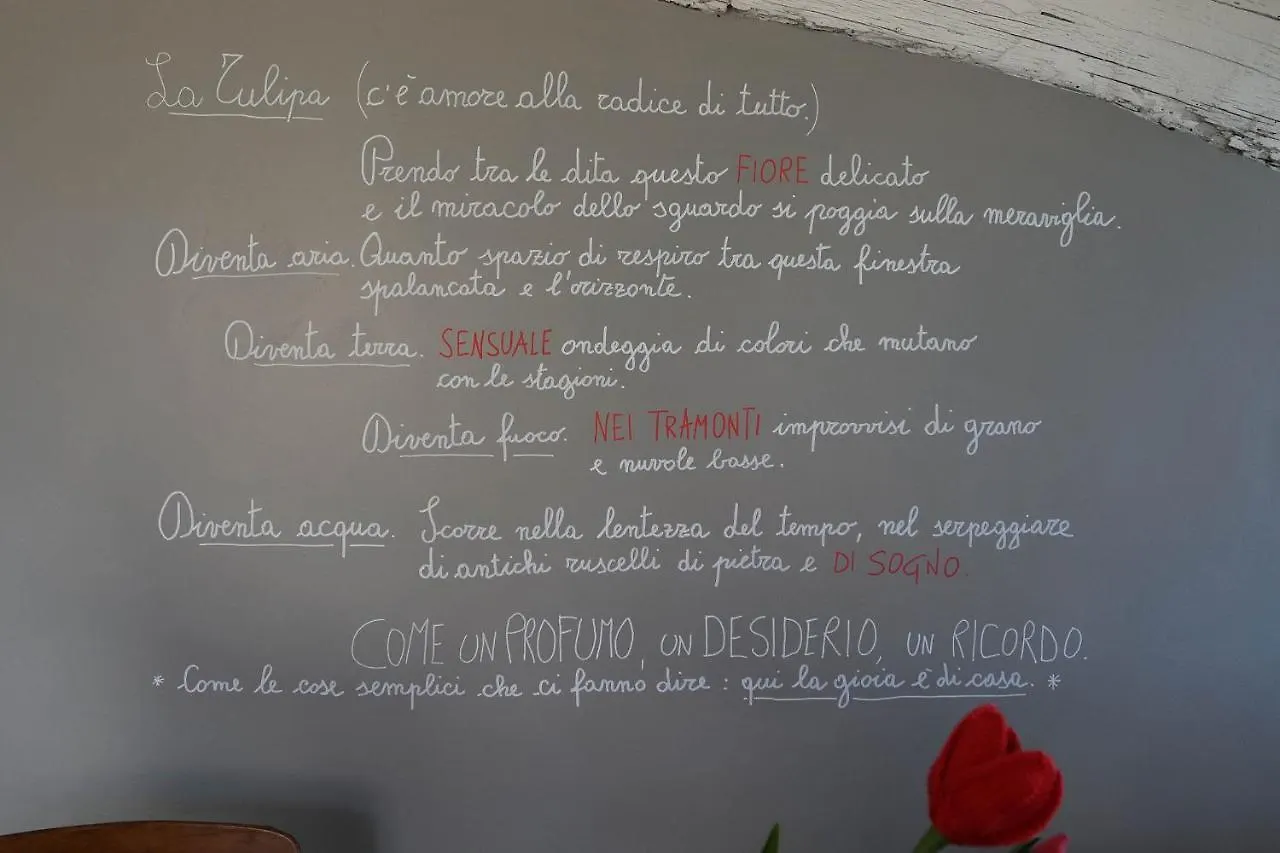 La Tulipa (c'è amore alla radice di tutto.)
Prendo tra le dita questo FIORE delicato
e il miracolo dello sguardo si poggia sulla meraviglia.
Diventa aria. Quanto spazio di respiro tra questa finestra
spalancata e l'orizzonte.
Diventa terra. SENSUALE ondeggia di colori che mutano
con le stagioni.
Diventa fuoco. NEI TRAMONTI improvvisi di grano
e nuvole basse.
Diventa acqua. Scorre nella lentezza del tempo, nel serpeggiare
di antichi ruscelli di pietra e DI SOGNO.
COME UN PROFUMO, UN DESIDERIO, UN RICORDO.
* Come le cose semplici che ci fanno dire : qui la gioia è di casa. *